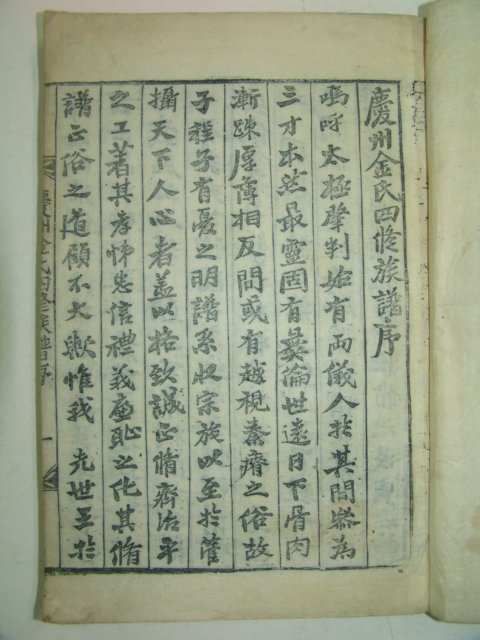 慶州金氏四修族譜序
嗚呼太極肇判始有兩儀人於其間叅為
三才本茲最靈固有彛倫世遠日下骨肉
漸疎厚薄相反間或有越視秦瘠之俗故
子程子有憂之明譜系收宗族以至於管
攝天下人心者盖以格致誠正脩齊治平
之工著其孝悌忠信禮義廉耻之化其脩
譜正俗之道顧不大歟惟我 先世至於
慶州金氏四修族譜序 一